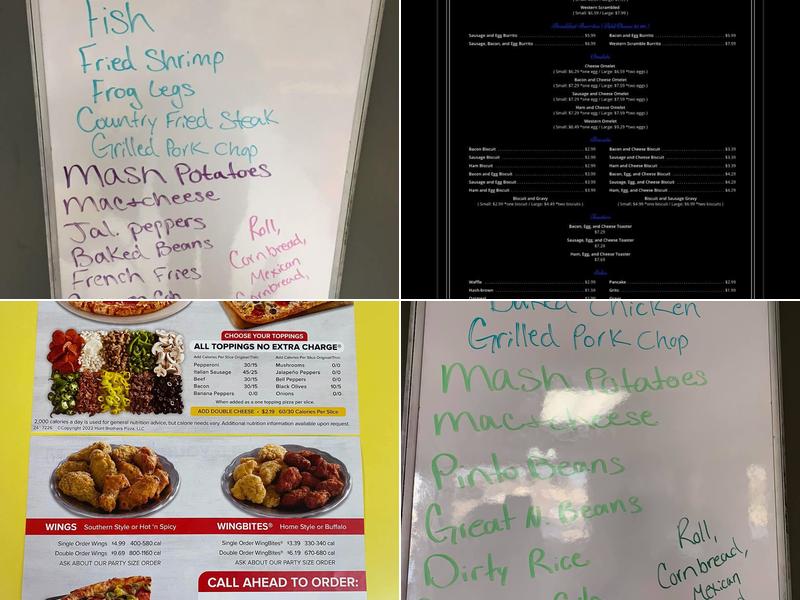 Fish
Fried Shrimp
Frog Legs
Country Fried Steak
Grilled Pork Chop
Mash Potatoes
Mac+cheese
Jal. peppers
Baked Beans
French Fries
Roll,
Cornbread,
Mexican
Cornbread,
Western Scrambled
( Small: $6.59 / Large: $7.99 )
Sausage and Egg Burrito $5.99
Bacon and Egg Burrito $5.99
Sausage, Bacon, and Egg Burrito $6.99
Western Scramble Burrito $7.59
Omelets
Cheese Omelet
( Small: $6.29 *one egg / Large: $6.59 *two eggs )
Bacon and Cheese Omelet
( Small: $7.29 *one egg / Large: $7.59 *two eggs )
Sausage and Cheese Omelet
( Small: $7.29 *one egg / Large: $7.59 *two eggs )
Ham and Cheese Omelet
( Small: $7.29 *one egg / Large: $7.59 *two eggs )
Western Omelet
( Small: $8.49 *one egg / Large: $9.29 *two eggs )
Biscuits
Bacon Biscuit $2.99
Bacon and Cheese Biscuit $3.39
Sausage Biscuit $2.99
Sausage and Cheese Biscuit $3.39
Ham Biscuit $2.99
Ham and Cheese Biscuit $3.39
Bacon and Egg Biscuit $3.99
Bacon, Egg, and Cheese Biscuit $4.29
Sausage and Egg Biscuit $3.99
Sausage, Egg, and Cheese Biscuit $4.29
Ham and Egg Biscuit $3.99
Ham, Egg, and Cheese Biscuit $4.29
Biscuit and Gravy
( Small: $2.99 *one biscuit / Large: $4.49 *two biscuits )
Biscuit and Sausage Gravy
( Small: $4.99 *one biscuit / Large: $6.99 *two biscuits )
Toasters
Bacon, Egg, and Cheese Toaster
$7.29
Sausage, Egg, and Cheese Toaster
$7.29
Ham, Egg, and Cheese Toaster
$7.69
Sides
Waffle $2.99
Pancake $2.99
Hash-brown $1.99
Grits $1.99
CHOOSE YOUR TOPPINGS
ALL TOPPINGS NO EXTRA CHARGE®
Add Calories Per Slice Original/Thin:
Pepperoni 30/15
Italian Sausage 45/25
Beef 30/15
Bacon 30/15
Banana Peppers 0/0
Add Calories Per Slice Original/Thin:
Mushrooms 0/0
Jalapeño Peppers 0/0
Bell Peppers 0/0
Black Olives 10/5
Onions 0/0
When added as a one topping pizza per slice.
ADD DOUBLE CHEESE • $2.19 60/30 Calories Per Slice
2,000 calories a day is used for general nutrition advice, but calorie needs vary. Additional nutrition information available upon request.
©Copyright 2022 Hunt Brothers Pizza, LLC
WINGS Southern Style or Hot 'n Spicy
Single Order Wings $4.99 400-580 cal
Double Order Wings $9.69 800-1160 cal
ASK ABOUT OUR PARTY SIZE ORDER
WINGBITES® Home Style or Buffalo
Single Order WingBites® $3.39 330-340 cal
Double Order WingBites® $6.19 670-680 cal
ASK ABOUT OUR PARTY SIZE ORDER
CALL AHEAD TO ORDER:
Baked Chicken
Grilled Pork Chop
Mash Potatoes
Mac+cheese
Pinto Beans
Great N. Beans
Dirty Rice
Roll,
Cornbread,
Mexican